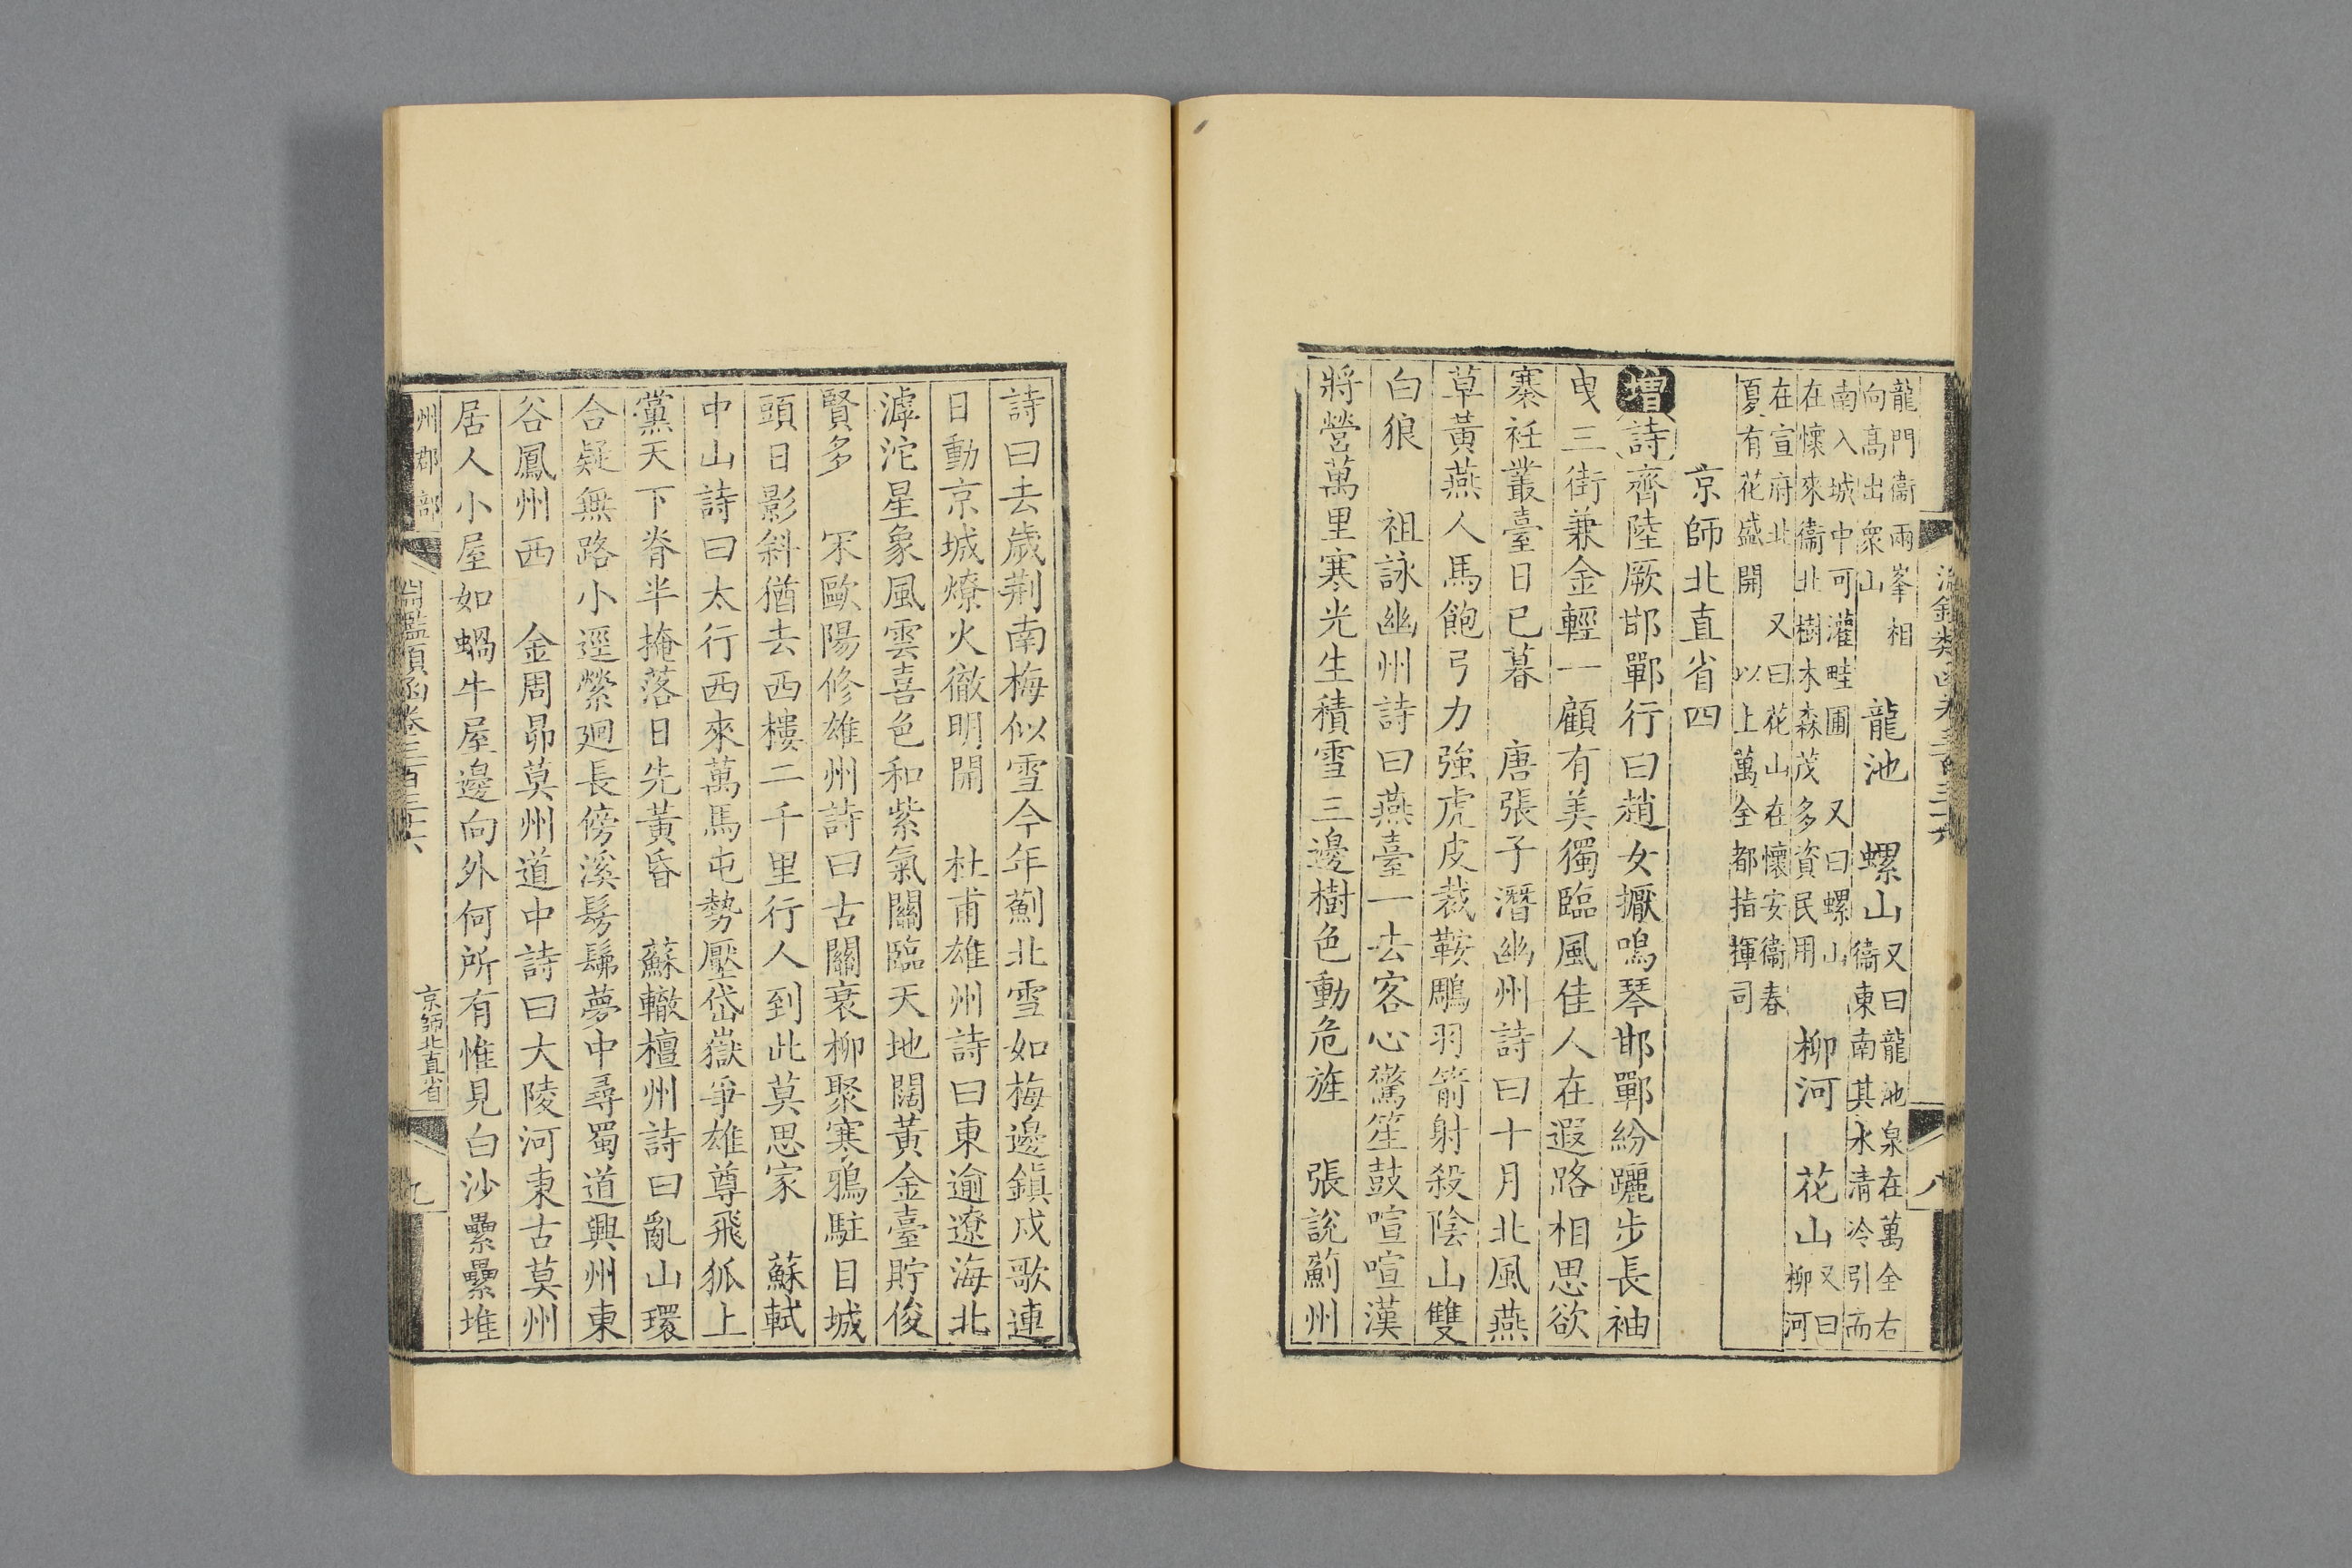 龍門衞兩峯相
向高出衆山
龍池
螺山
又曰龍池泉在萬全右
衞東南其水清冷引而
南入城中可灌畦圃
又曰螺山
在懷來衞北樹木森茂多資民用
柳河
花山
又曰
柳河
在宣府北
又曰花山在懷安衞春
夏有花盛開
以上萬全都指揮司
京師北直省四
增詩齊陸厥邯鄲行曰趙女擫鳴琴邯鄲紛躧步長袖
曳三街兼金輕一顧有美獨臨風佳人在遐路相思欲
寨袵叢臺日已暮　唐張子潛幽州詩曰十月北風燕
草黃燕人馬飽弓力強虎皮裁鞍鵰羽箭射殺陰山雙
白狼　祖詠幽州詩曰燕臺一去客心驚笙鼓喧喧漢
將營萬里寒光生積雪三邊樹色動危旌　張說薊州
八
詩曰去歲荆南梅似雪今年薊北雪如梅邊鎭戍歌連
日動京城燎火徹明開　杜甫雄州詩曰東逾遼海北
滹沱星象風雲喜色和紫氣關臨天地闊黃金臺貯俊
賢多　宋歐陽修雄州詩曰古關衰柳聚寒鴉駐目城
頭日影斜猶去西樓二千里行人到此莫思家　蘇軾
中山詩曰太行西來萬馬屯勢壓岱嶽爭雄尊飛狐上
黨天下脊半掩落日先黃昏　蘇轍檀州詩曰亂山環
合疑無路小逕縈廻長傍溪髣髴夢中尋蜀道興州東
谷鳳州西　金周昻莫州道中詩曰大陵河東古莫州
居人小屋如蝸牛屋邊向外何所有惟見白沙纍纍堆
州郡部
淵鑑類函卷三百三十六
京師北直省
九